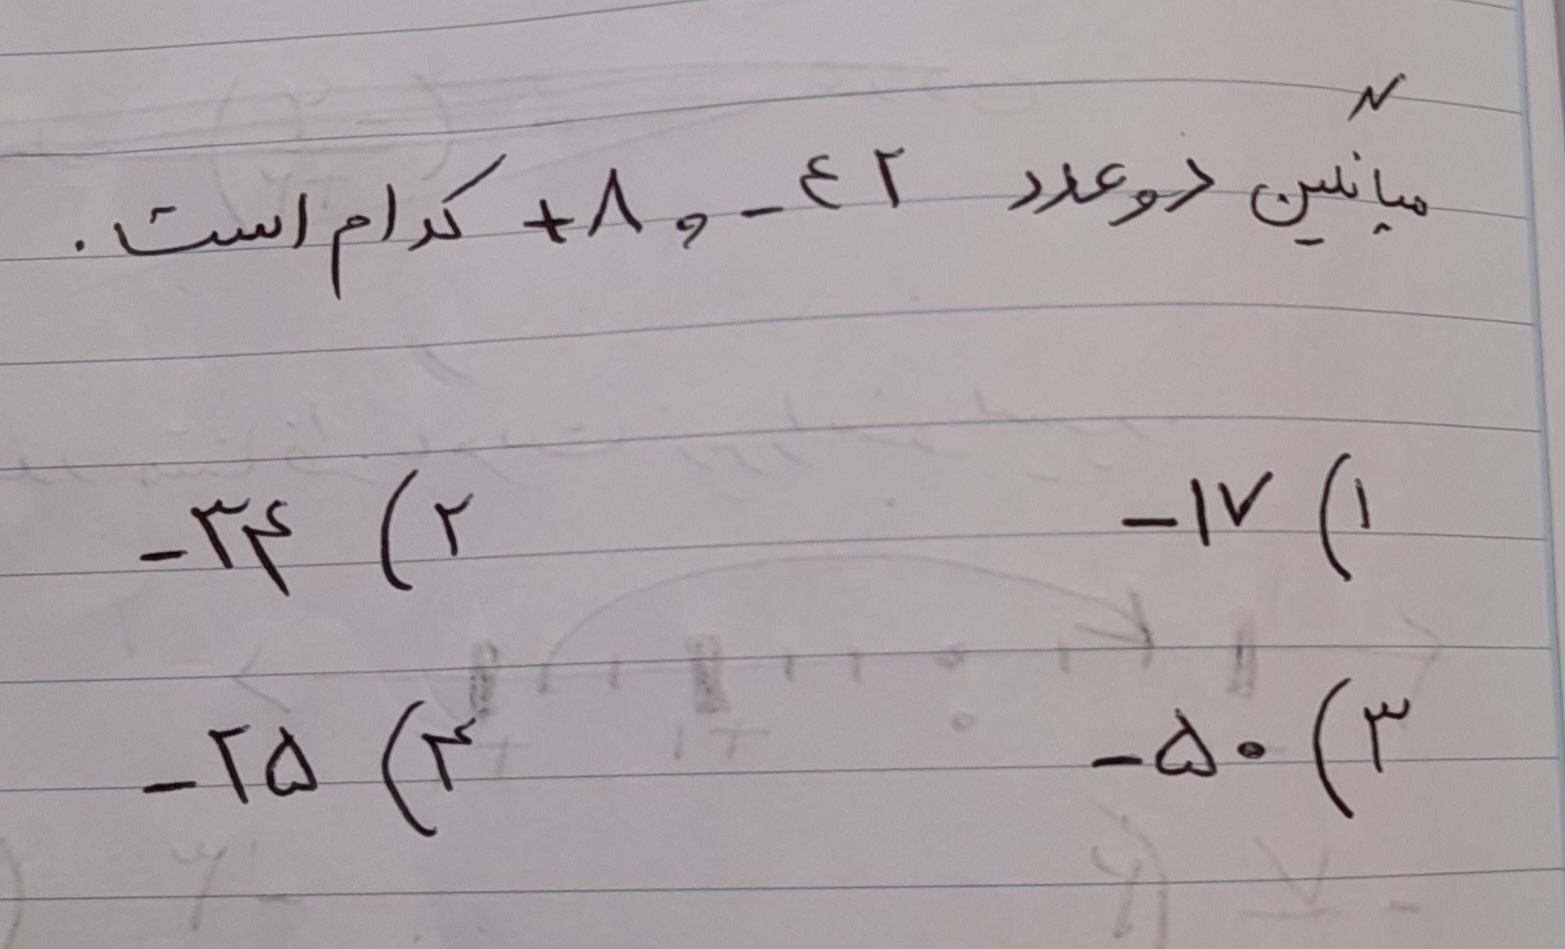 میانگین دو عدد -۴۲ و +۸ کدام است.
۱) -۱۷
۲) -۳۴
۳) -۵۰
۴) -۲۵